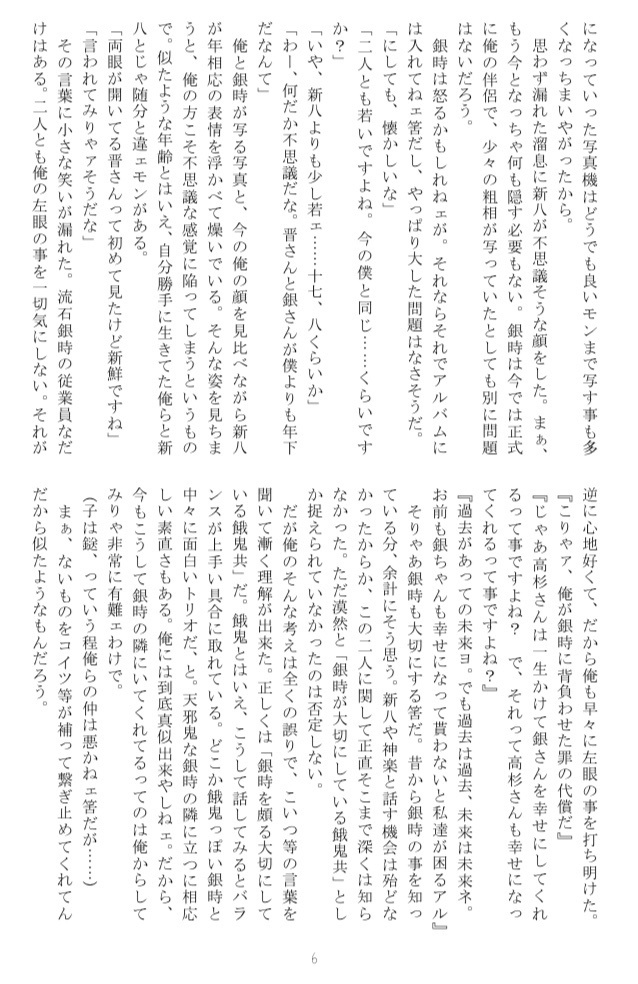 になっていった写真機はどうでも良いモンまで写す事も多
くなっちまいやがったから。
　思わず漏れた溜息に新八が不思議そうな顔をした。まぁ、
もう今となっちゃ何も隠す必要もない。銀時は今では正式
に俺の伴侶で、少々の粗相が写っていたとしても別に問題
はないだろう。
　銀時は怒るかもしれねェが。それならそれでアルバムに
は入れてねェ筈だし、やっぱり大した問題はなさそうだ。
「にしても、懐かしいな」
「二人とも若いですよね。今の僕と同じ……くらいです
か？」
「いや、新八よりも少し若ェ……十七、八くらいか」
「わー、何だか不思議だな。晋さんと銀さんが僕よりも年下
だなんて」
　俺と銀時が写る写真と、今の俺の顔を見比べながら新八
が年相応の表情を浮かべて燥いでいる。そんな姿を見ちま
うと、俺の方こそ不思議な感覚に陥ってしまうというもの
で。似たような年齢とはいえ、自分勝手に生きてた俺らと新
八とじゃ随分と違ェモンがある。
「両眼が開いてる晋さんって初めて見たけど新鮮ですね」
「言われてみりゃァそうだな」
　その言葉に小さな笑いが漏れた。流石銀時の従業員なだ
けはある。二人とも俺の左眼の事を一切気にしない。それが
逆に心地好くて、だから俺も早々に左眼の事を打ち明けた。
『こりゃァ、俺が銀時に背負わせた罪の代償だ』
『じゃあ高杉さんは一生かけて銀さんを幸せにしてくれ
るって事ですよね？　で、それって高杉さんも幸せになっ
てくれるって事ですよね？』
『過去があっての未来ヨ。でも過去は過去、未来は未来ネ。
お前も銀ちゃんも幸せになって貰わないと私達が困るアル』
　そりゃあ銀時も大切にする筈だ。昔から銀時の事を知っ
ている分、余計にそう思う。新八や神楽と話す機会は殆どな
かったからか、この二人に関して正直そこまで深くは知ら
なかった。ただ漠然と「銀時が大切にしている餓鬼共」とし
か捉えられていなかったのは否定しない。
　だが俺のそんな考えは全くの誤りで、こいつ等の言葉を
聞いて漸く理解が出来た。正しくは「銀時を頗る大切にして
いる餓鬼共」だ。餓鬼とはいえ、こうして話してみるとバラ
ンスが上手い具合に取れている。どこか餓鬼っぽい銀時と
中々に面白いトリオだな、と。天邪鬼な銀時の隣に立つに相応
しい素直さもある。俺には到底真似出来やしねェ。だから、
今もこうして銀時の隣にいてくれてるってのは俺からして
みりゃ非常に有難ェわけで。
（子は鎹、っていう程俺らの仲は悪かねェ筈だが……）
　まぁ、ないものをコイツ等が補って繋ぎ止めてくれてん
だから似たようなもんだろう。
6